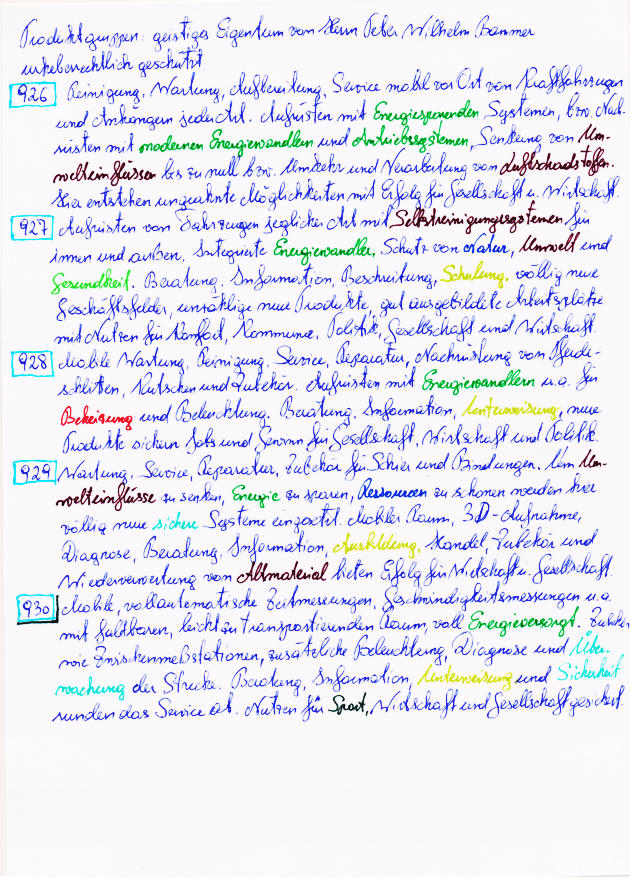 Produktgruppen: geistiges Eigentum von Herrn Peter Wilhelm Bammer
urheberrechtlich geschützt
926 Reinigung, Wartung, Aufbereitung, Service mobil vor Ort von Kraftfahrzeugen
und Anhängern jeder Art. Aufrüsten mit Energiesparenden Systemen, bzw. Nach-
rüsten mit modernen Energiewandlern und Antriebssystemen, Senkung von Um-
welteinflüssen bis zu null bzw. Umkehr und Verarbeitung von Luftschadstoffen.
Hier entstehen ungeahnte Möglichkeiten mit Erfolg für Gesellschaft u. Wirtschaft.
927 Aufrüsten von Fahrzeugen jeglicher Art mit Selbstreinigungssystemen für
innen und außen, Integrierte Energiewandler, Schutz von Natur, Umwelt und
Gesundheit. Beratung, Information, Beschreibung, Schulung, völlig neue
Geschäftsfelder, unzählige neue Produkte, gut ausgebildete Arbeitsplätze
mit Nutzen für Komfort, Kommune, Politik, Gesellschaft und Wirtschaft.
928 Mobile Wartung, Reinigung, Service, Reparatur, Nachrüstung von Pferde-
schlitten, Kutschen und Zubehör. Aufrüsten mit Energiewandlern u.a. für
Beheizung und Beleuchtung. Beratung, Information, Unterweisung, neue
Produkte sichern Jobs und Gewinn für Gesellschaft, Wirtschaft und Politik.
929 Wartung, Service, Reparatur, Zubehör für Schier und Bindungen. Um Um-
welteinflüsse zu senken, Energie zu sparen, Ressourcen zu schonen werden hier
völlig neue sichere Systeme eingesetzt. Mobiler Raum, 3D-Aufnahme,
Diagnose, Beratung, Information, Ausbildung, Handel, Zubehör und
Wiederverwertung von Altmaterial bieten Erfolg für Wirtschaft u. Gesellschaft.
930 Mobile, vollautomatische Zeitmessungen, Geschwindigkeitsmessungen u.a.
mit faltbaren, leicht zu transportierenden Raum, voll Energieversorgt. Zubehör
wie Zwischenmeßstationen, zusätzliche Beleuchtung, Diagnose und Über-
wachung der Strecke. Beratung, Information, Unterweisung und Sicherheit
runden das Service ab. Nutzen für Sport, Wirtschaft und Gesellschaft gesichert.